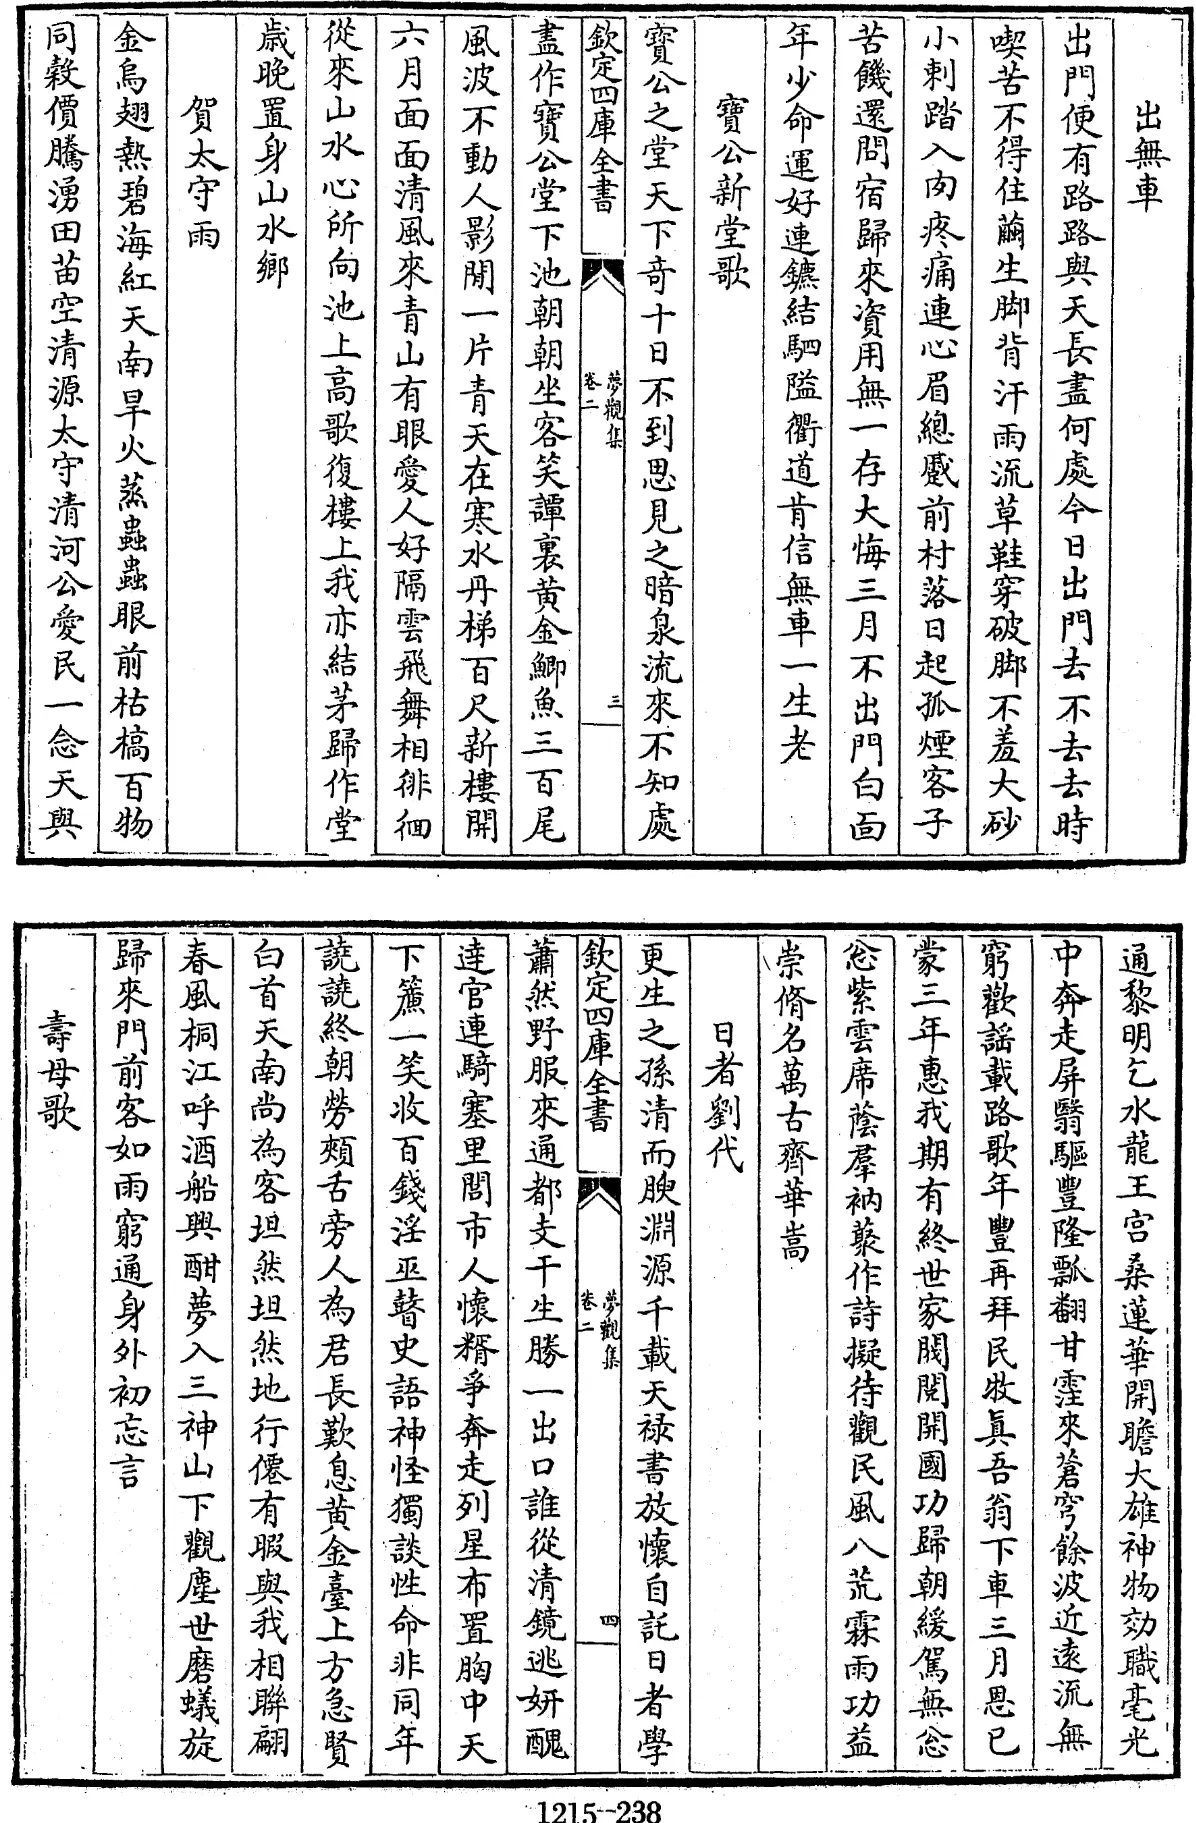 出無車
出門便有路路與天長盡何處今日出門去不去去時
喫苦不得住繭生脚背汗雨流草鞋穿破脚不羞大砂
小刺踏入肉疼痛連心眉總蹙前村落日起孤煙客子
苦饑還問宿歸來資用無一存大悔三月不出門白面
年少命運好連鑣結駟隘衢道肯信無車一生老
寶公新堂歌
寶公之堂天下竒十日不到思見之暗泉流來不知處
欽定四庫全書
夢觀集
卷二
三
盡作寶公堂下池朝朝坐客笑譚裏黄金鯽魚三百尾
風波不動人影閒一片青天在寒水丹梯百尺新樓開
六月面面清風來青山有眼愛人好隔雲飛舞相徘徊
從來山水心所向池上高歌復樓上我亦結茅歸作堂
歲晚置身山水鄉
賀太守雨
金烏翅熱碧海紅天南旱火蒸蟲蟲眼前枯槁百物
同穀價騰湧田苗空清源太守清河公愛民一念天與
通黎明乞水龍王宫桑蓮華開瞻大雄神物効職毫光
中奔走屏翳驅豐隆瓢翻甘霔來蒼穹餘波近遠流無
窮歡謡載路歌年豐再拜民牧真吾翁下車三月恩已
蒙三年惠我期有終世家閥閲開國功歸朝緩駕無忩
忩紫雲席蔭羣衲藂作詩擬待觀民風八荒霖雨功益
崇脩名萬古齊華嵩
日者劉代
更生之孫清而腴淵源千載天禄書放懷自託日者學
欽定四庫全書
夢觀集
卷二
四
蕭然野服來通都支干生勝一出口誰從清鏡逃妍醜
逹官連騎塞里閭市人懷糈爭奔走列星布置胸中天
下簾一笑收百錢淫巫瞽史語神怪獨談性命非同年
譊譊終朝勞頰舌旁人為君長歎息黄金臺上方急賢
白首天南尚為客坦然坦然地行僊有暇與我相聨翩
春風桐江呼酒船興酣夢入三神山下觀塵世磨蟻旋
歸來門前客如雨窮通身外初忘言
壽母歌
1215-238